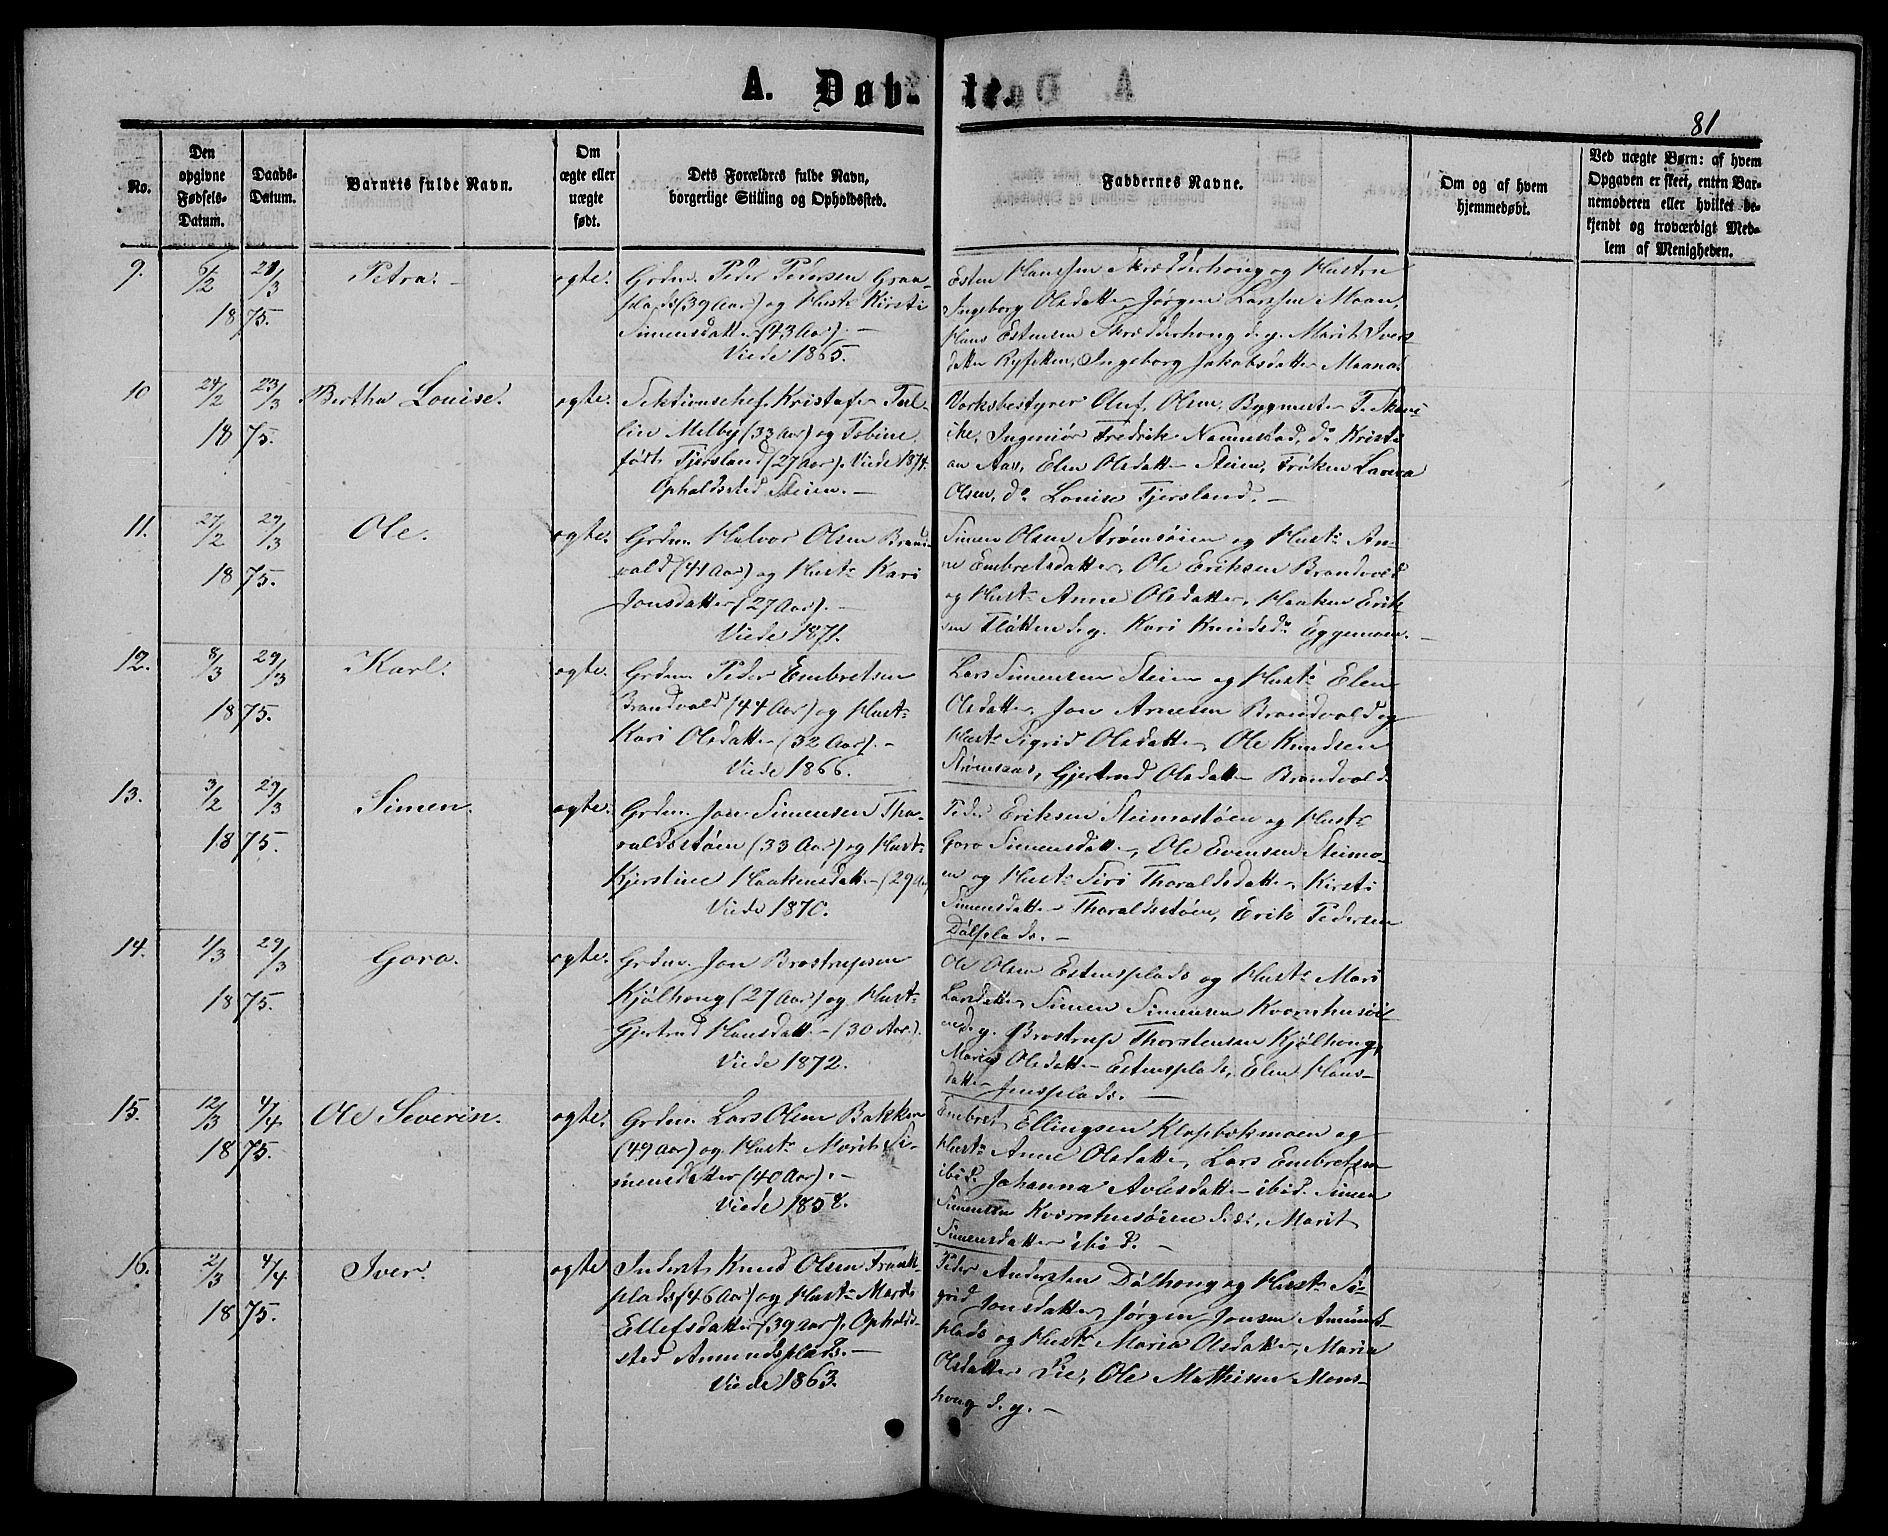 A. Døbte.
81
No.
Den opgivne Fødsels-Datum.
Daabs-Datum.
Barnets fulde Navn.
Om ægte eller uægte født.
Dets Forældres fulde Navn, borgerlige Stilling og Opholdssted.
Faddernes Navne.
Om og af hvem hjemmedøbt.
Ved uægte Børn: af hvem Opgaven er skeet, enten Barnemoderen eller hvilket bekjendt og troværdigt Medlem af Menigheden.
9. 6/2 21/3 1875. Petra. ægte.
Grdm. Peder Pedersen Graa-
plads (39 Aar) og Hust. Kirsti
Simensdatter (43 Aar). –
Viede 1865.
Esten Hansen Skrædderhoug og Hustru
Ingeborg Olsdatter, Jørgen Larsen Moan,
Hans Estensen Skrædderhoug d. y. Marit Ivers-
datter, Ingeborg Jakobsdatter Moana.
10 24/2 23/3 1875. Bertha Louise. ægte.
Sektionschef Kristofer Tul-
lin Melby (33 Aar) og Tobine
født Tjersland (27 Aar). Viede 1874.
Opholdssted Steien. –
Værksbestyrer Oluf Olsen, Bygmester
Ingeniør Fredrik Nannestad, do Kristi-
an Aas, Elen Olsdatter Steien, Frøken Laura
Olsen, do Louise Tjersland. –
11. 27/2 29/3 1875. Ole. ægte.
Grdm. Halvor Olsen Brand-
vold (41 Aar) og Hust. Kari
Jonsdatter (27 Aar). –
Viede 1871.
Simen Olsen Strømsøien og Hust. An-
ne Embretsdatter, Ole Eriksen Brandvold
og Hust. Anne Olsdatter, Haaken Erik-
sen Fløtten d. y. Kari Knudsd. Eggemoen. –
12. 8/3 29/3 1875. Karl. ægte.
Grdm. Peder Embretsen
Brandvold (44 Aar) og Hust.
Kari Olsdatter (32 Aar). –
Viede 1866.
Lars Simensen Steien og Hust. Elen
Olsdatter, Jon Arnesen Brandvold og
Hust. Sigrid Olsdatter, Ole Knudsen
Gjertrud Olsdatter Brandvold.
13. 3/2 29/3 1875. Simen. ægte.
Grdm. Jon Simensen Tho-
raldsstøen (33 Aar) og Hust.
Kjerstine Haakensdatter (29 Aar)
Viede 1870.
Peder Eriksen Steimostøen og Hust.
Goro Simensdatter, Ole Evensen Steimo-
en og Hust. Siri Thoraldsdatter, Kirsti
Simensdatter Thoraldsstøen, Erik Pedersen
Dølplads. –
14. 1/3 29/3 1875. Goro. ægte.
Grdm. Jon Brostrupsen
Kjølhoug (27 Aar) og Hust.
Gjertrud Hansdatter (30 Aar).
Viede 1872.
Ole Olsen Estensplads og Hust. Mari
Larsdatter, Simen Simensen Kvernhusøi-
en d. y. Brostrup Thorstensen Kjølhoug,
Maria Olsdatter Estensplads, Elen Hans-
datter Jensplads. –
15. 12/3 4/4 1875. Ole Severin. ægte.
Grdm. Lars Olsen Bakken
(49 Aar) og Hust. Marit Si-
mensdatter (40 Aar). –
Viede 1858.
Embret Ellingsen Klopbækmoen og
Hust. Anne Olsdatter, Lars Embretsen
ibid. Johanna Avlesdatter ibid. Simen
Simensen Kvernhusøien d. æ., Marit
Simensdatter ibid. –
16. 2/3 4/4 1875. Iver. ægte
Inderst Knud Olsen Tronk-
plads (46 Aar) og Hust. Marit
Ellefsdatter (39 Aar), Opholds-
sted Amundsplads. –
Viede 1863.
Peder Andersen Dølhoug og Hust. Si-
grid Jonsdatter, Jørgen Jonsen Amunds-
plads og Hust. Maria Olsdatter, Maria
Olsdatter Lie, Ole Mathisen Mons-
houg d. y. –